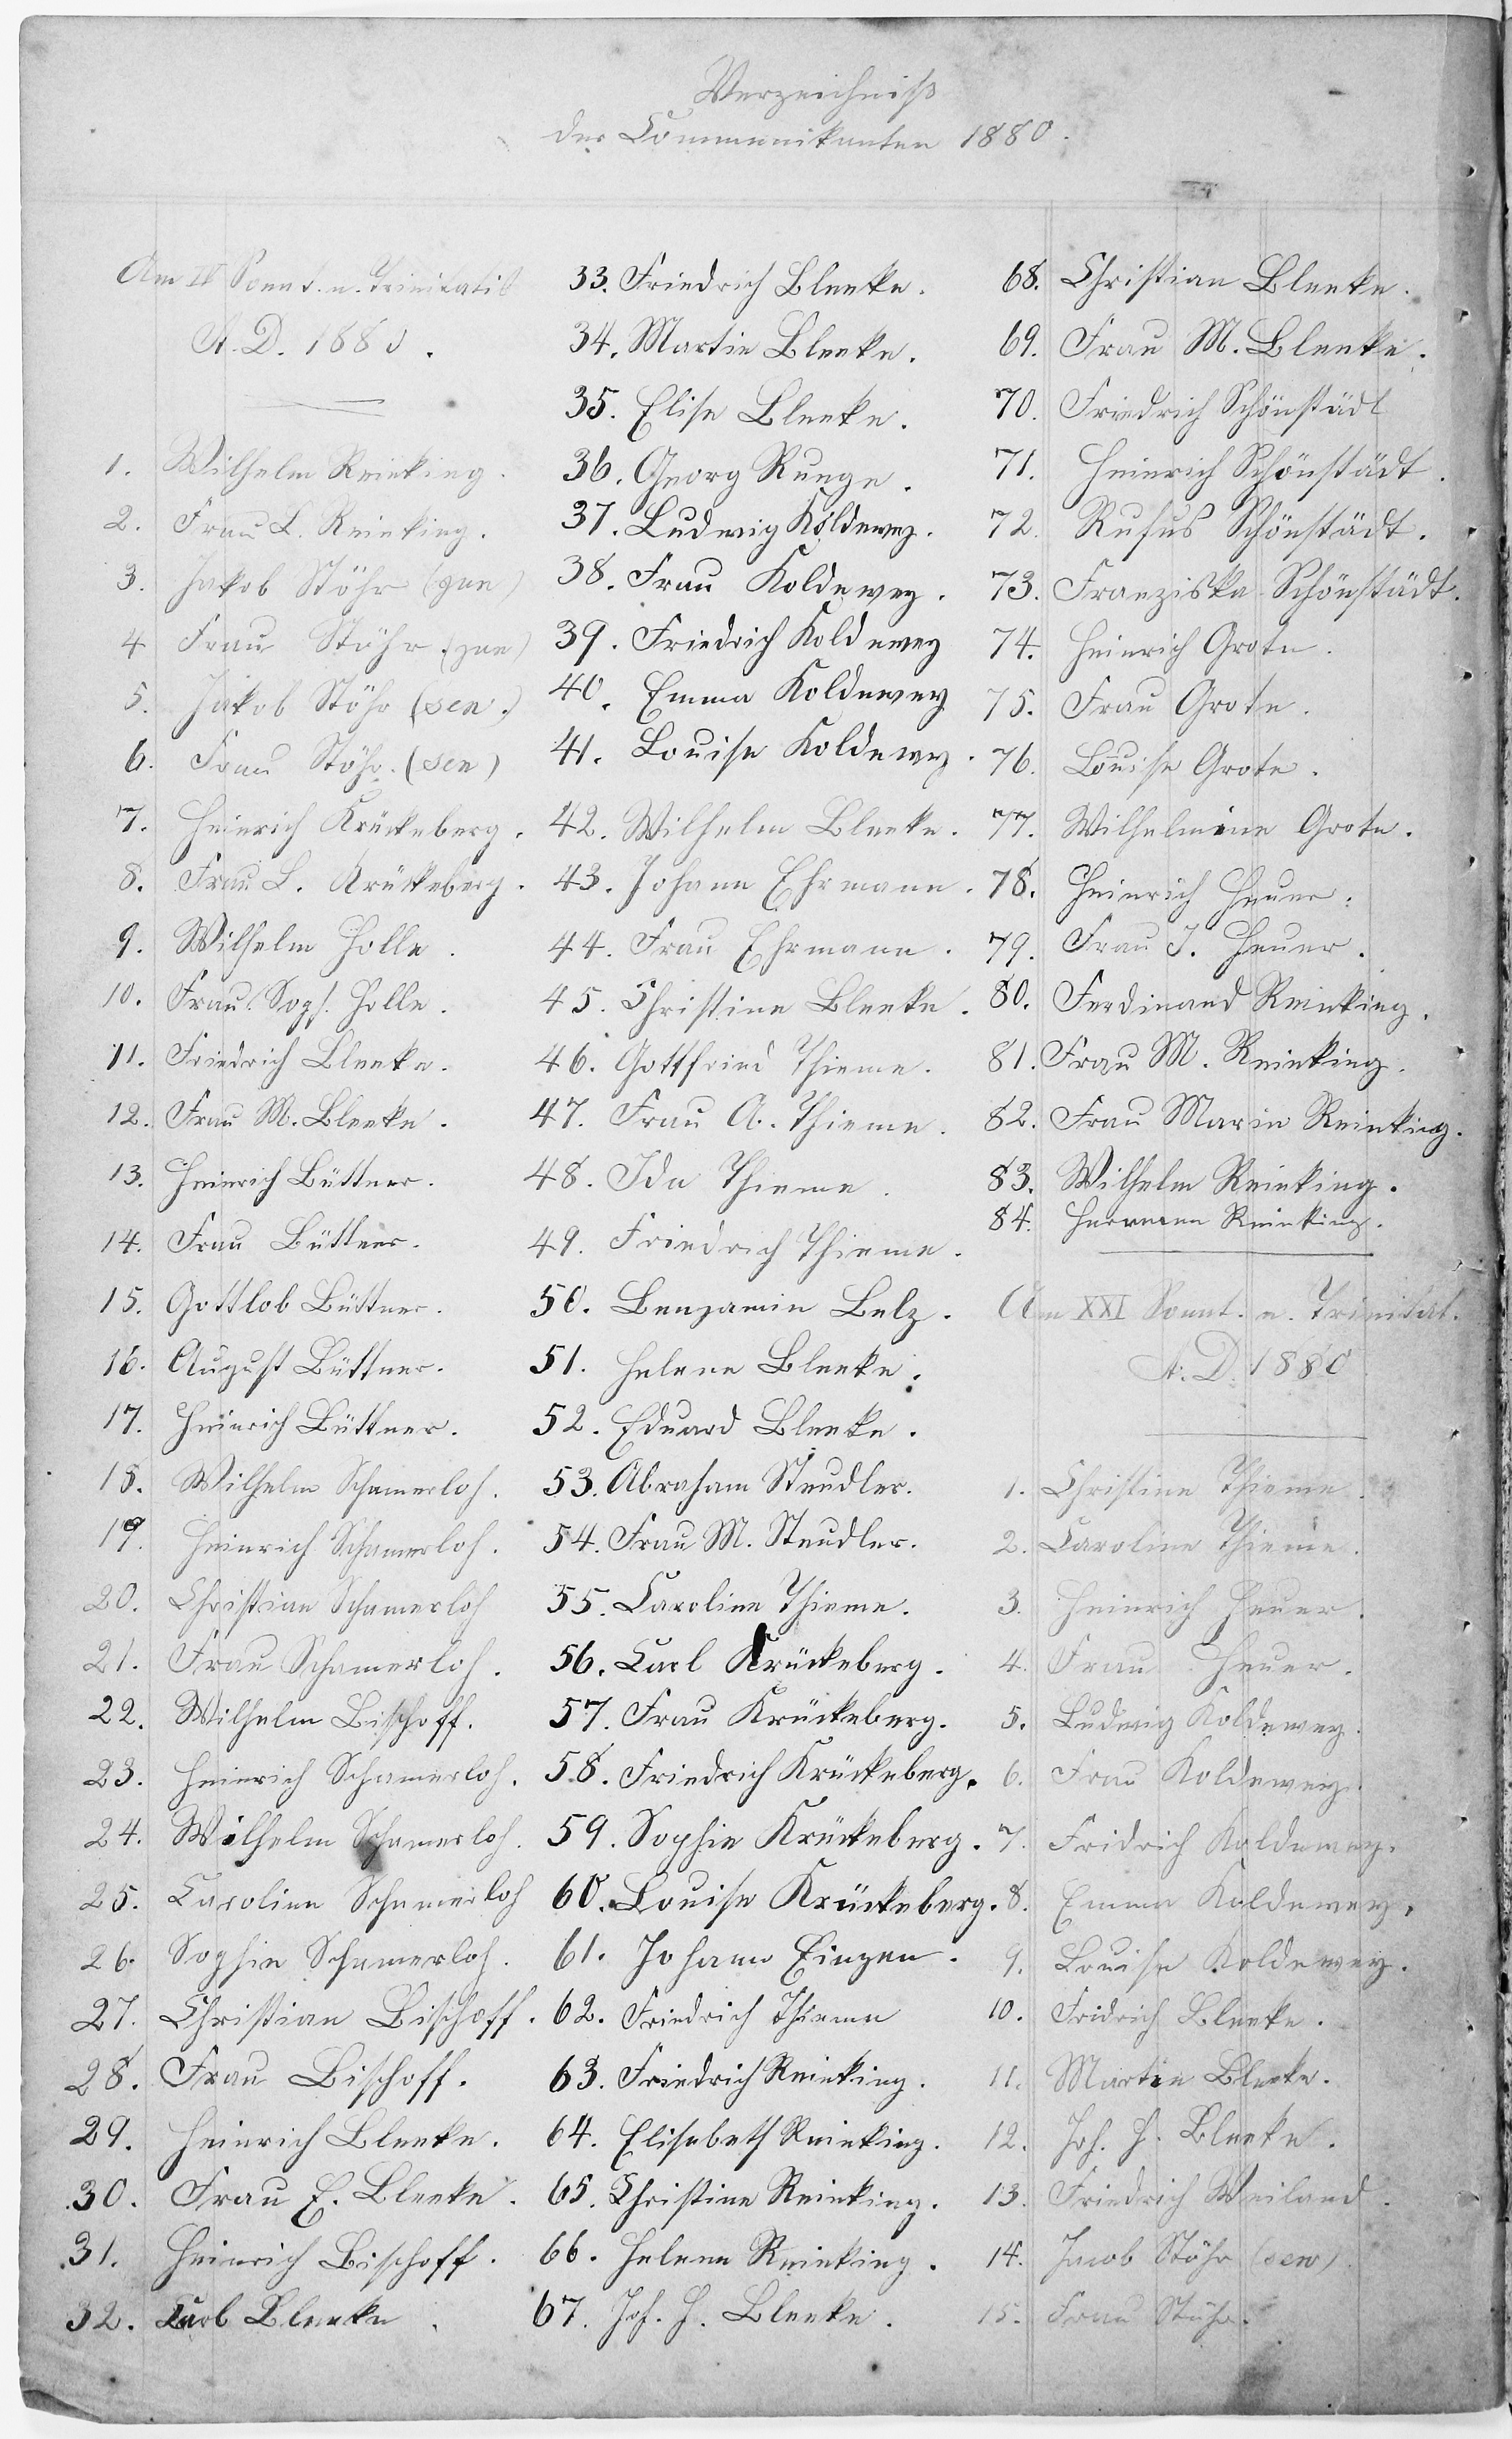 Verzeichniß
der Communikanten 1880.
Am II Sonnt. n. Trinitatis
A. D. 1880.
1. Wilhelm Reinking.
2. Frau L. Reinking.
3. Jakob Stöhr (jun)
4 Frau Stöhr (jun)
5. Jakob Stöhr (sen.)
6. Frau Stöhr. (sen)
7. Heinrich Krückeberg.
8. Frau L. Krückeberg.
9. Wilhelm Holle.
10. Frau Soph. Holle.
11. Friedrich Bleeke.
12. Frau M. Bleeke.
13. Heinrich Büttner.
14. Frau Büttner.
15. Gottlob Büttner.
16. August Büttner.
17. Heinrich Büttner.
18. Wilhelm Schamerloh.
19. Heinrich Schamerloh.
20. Christian Schamerloh
21. Frau Schamerloh.
22. Wilhelm Bischoff.
23. Heinrich Schamerloh.
24. Wilhelm Schamerloh.
25. Caroline Schamerloh
26. Sophie Schamerloh.
27. Christian Bischoff.
28. Frau Bischoff.
29. Heinrich Bleeke.
30. Frau E. Bleeke.
31. Heinrich Bischoff.
32. Carl Bleeke.
33. Friedrich Bleeke.
34. Martin Bleeke.
35. Elise Bleeke.
36. Georg Runge.
37. Ludwig Koldewey.
38. Frau Koldewey.
39. Friedrich Koldewey
40. Emma Koldewey
41. Louise Koldewey.
42. Wilhelm Bleeke.
43. Johann Ehrmann.
44. Frau Ehrmann.
45. Christine Bleeke.
46. Gottfried Thieme.
47. Frau A. Thieme.
48. Ida Thieme.
49. Friedrich Thieme.
50. Benjamin Belz.
51. Helene Bleeke.
52. Eduard Bleeke.
53. Abraham Steudler.
54. Frau M. Steudler.
55. Caroline Thieme.
56. Carl Krückeberg.
57. Frau Krückeberg.
58. Friedrich Krückeberg.
59. Sophie Krückeberg.
60. Louise Krückeberg.
61. Johann Einzen.
62. Friedrich Thieme
63. Friedrich Reinking.
64. Elisabeth Reinking.
65. Christine Reinking.
66. Helene Reinking.
67. Joh. H. Bleeke.
68. Christian Bleeke.
69. Frau M. Bleeke.
70. Friedrich Schönstädt
71. Heinrich Schönstädt.
72. Rufus Schönstädt.
73. Franziska Schönstädt.
74. Heinrich Grote.
75. Frau Grote.
76. Louise Grote.
77. Wilhelmine Grote.
78. Heinrich Heuer.
79. Frau J. Heuer.
80. Ferdinand Reinking.
81. Frau M. Reinking.
82. Frau Marie Reinking.
83. Wilhelm Reinking.
84. Hermann Reinking.
Am XXI Sonnt. n. Trinitat.
A. D. 1880
1. Christine Thieme.
2. Caroline Thieme.
3. Heinrich Heuer.
4. Frau Heuer.
5. Ludwig Koldewey.
6. Frau Koldewey.
7. Fridrich Koldewey.
8. Emma Koldewey.
9. Louise Koldewey.
10. Fridrich Bleeke.
11. Martin Bleeke.
12. Joh. H. Bleeke.
13. Friedrich Weiland.
14. Jacob Stöhr (sen)
15. Frau Stöhr.